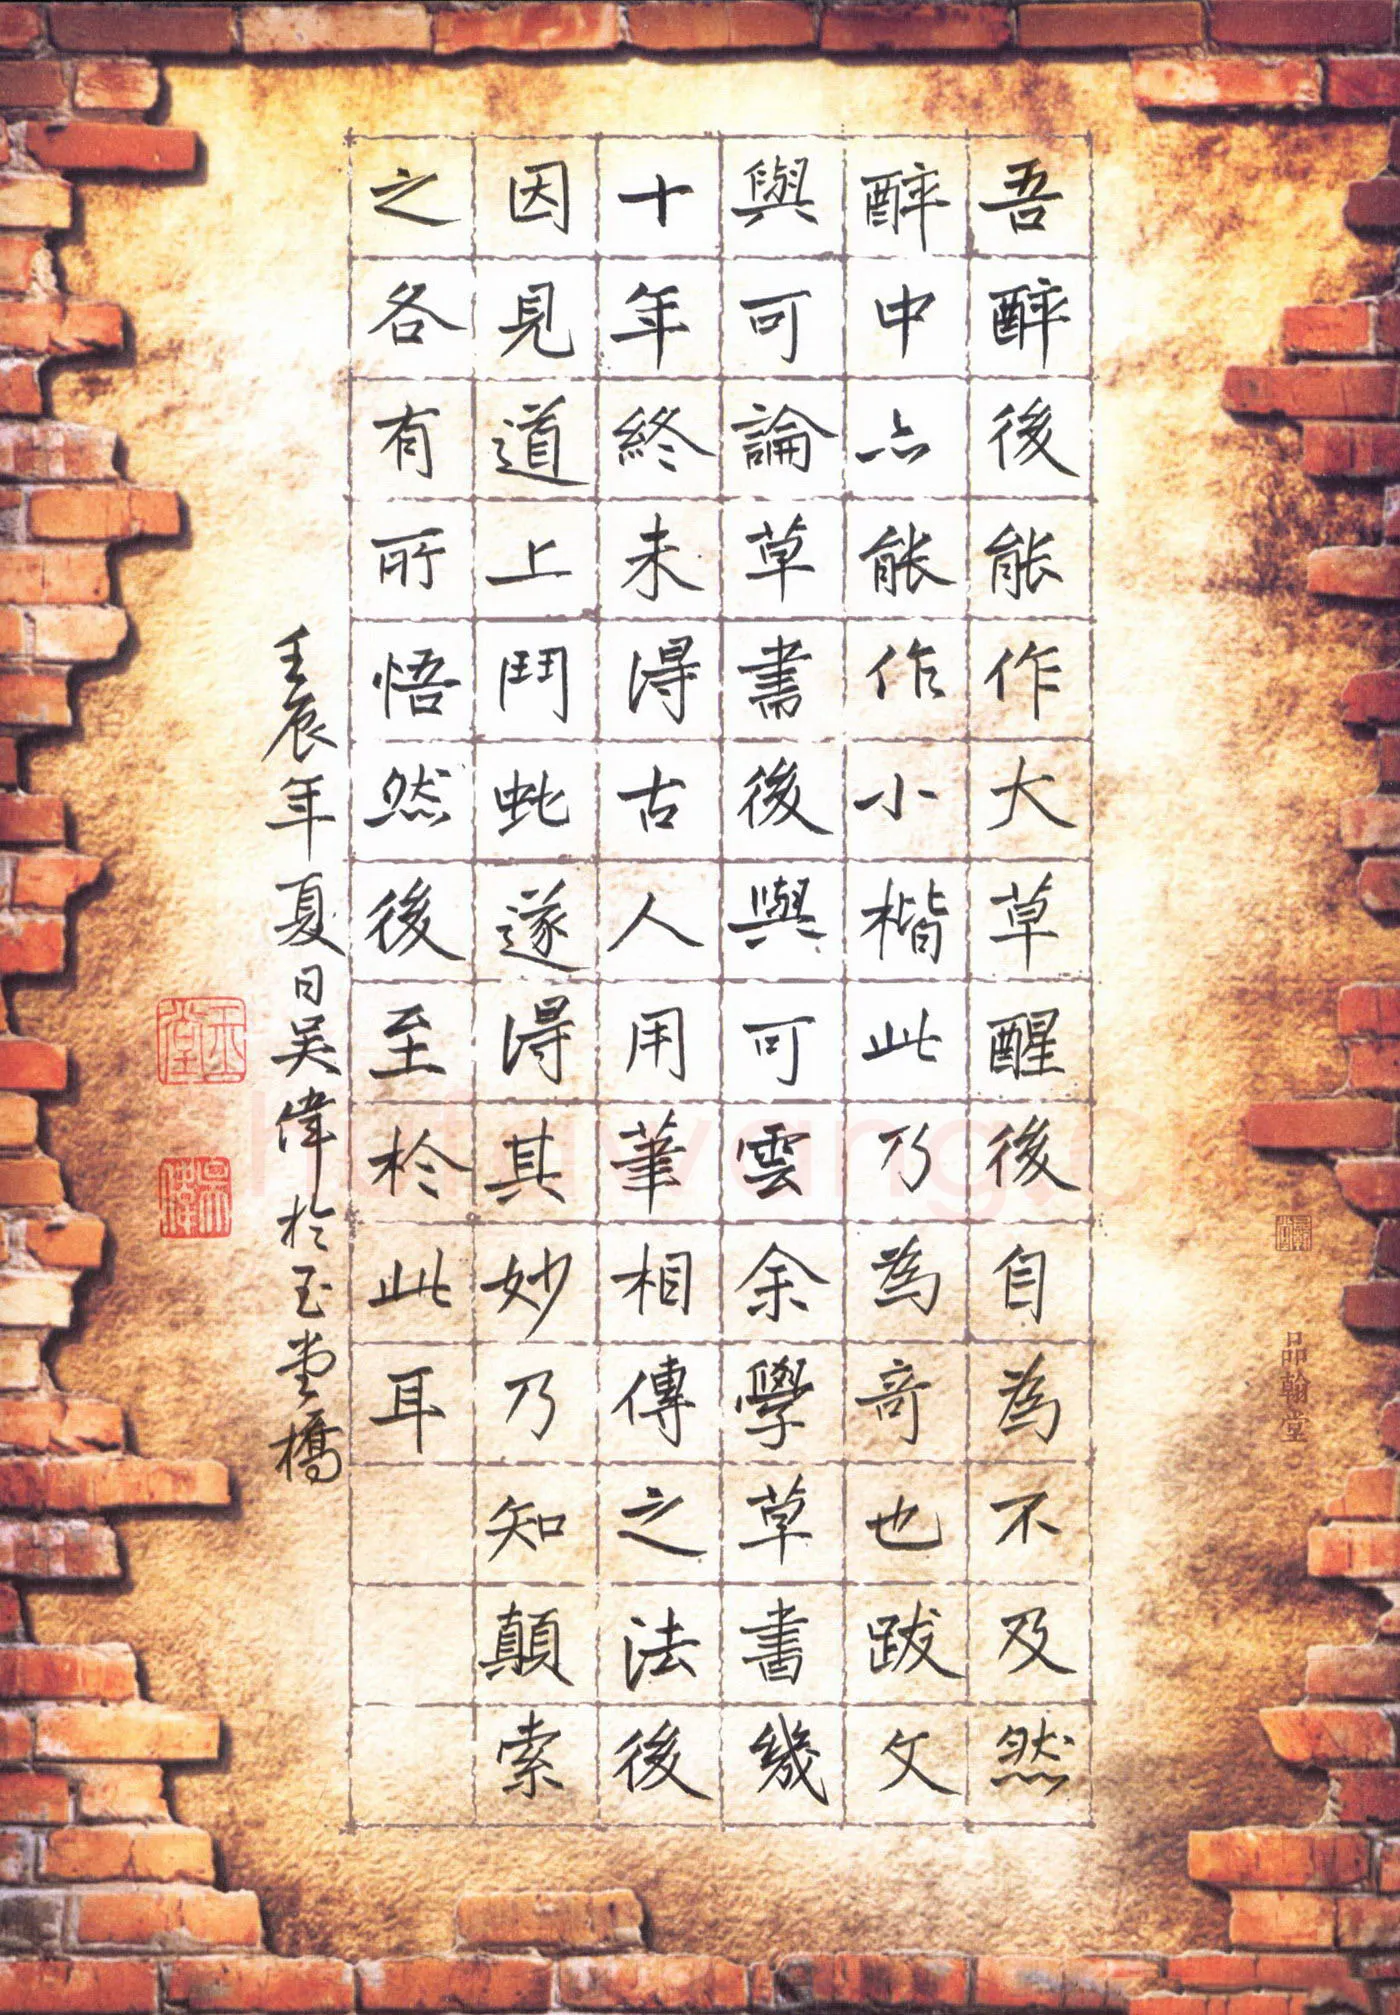 吾醉後能作大草醒後自為不及然
醉中亦能作小楷此乃為奇也跋文
與可論草書後與可雲余學草書幾
十年終未得古人用筆相傳之法後
因見道上鬥蛇遂得其妙乃知顛索
之各有所悟然後至於此耳
壬辰年夏日吴偉於玉堂橋
玉堂
吴偉
品翰堂